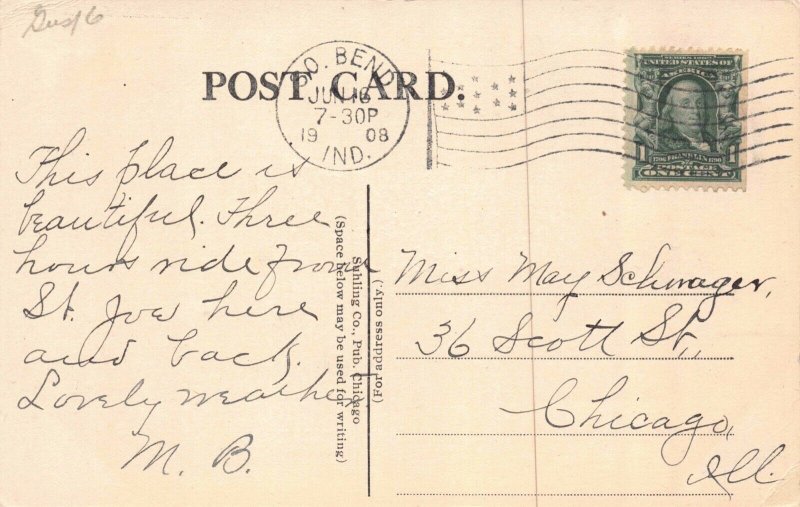 POST CARD.
SO. BEND
JUN 16
7-30P
19 08
IND.
SERIES 1902
UNITED STATES OF
AMERICA
1706 FRANKLIN 1790
POSTAGE
1 ONE CENT 1
This place is
beautiful. Three
hours ride from
St. Joe here
and back.
Lovely weather
M. B.
(Space below may be used for writing)
Suhling Co., Pub. Chicago
(For address only.)
Miss May Schwager,
36 Scott St.,
Chicago,
Ill.